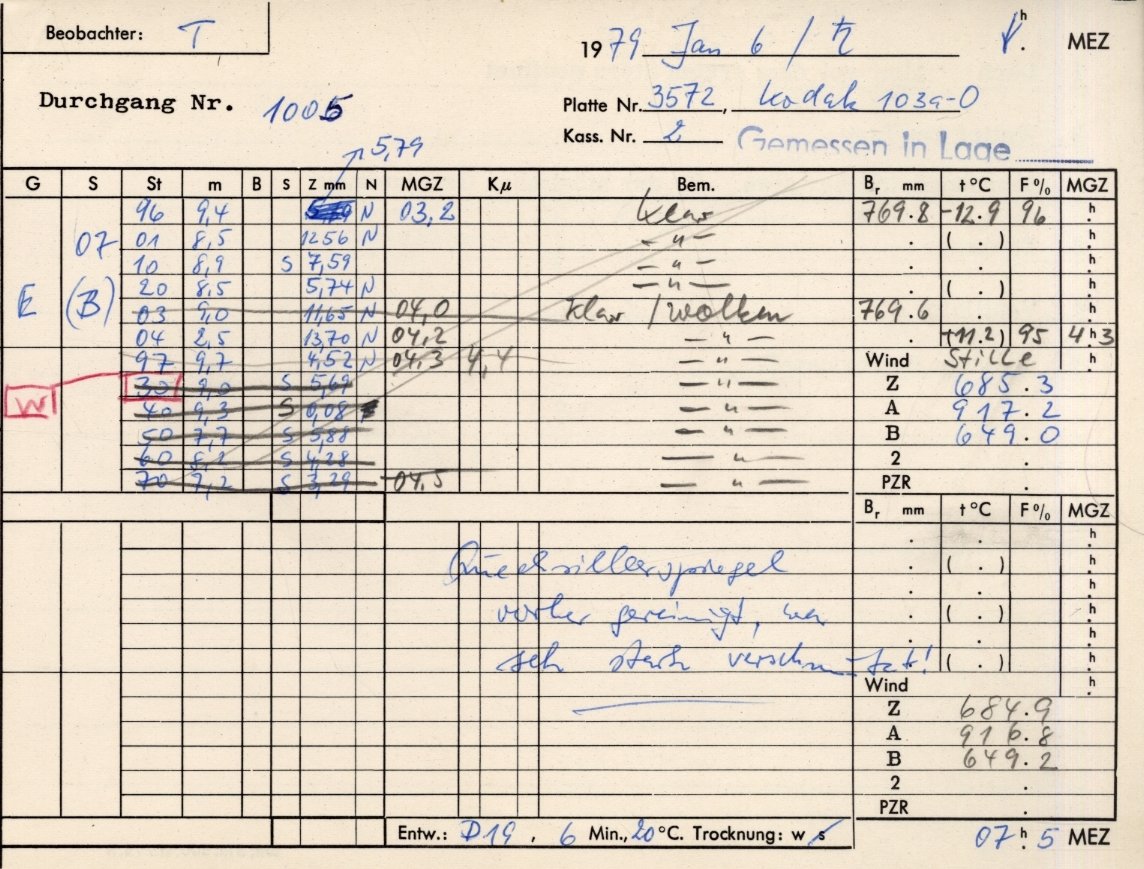 Beobachter: T
1979 Jan 6 / ♄ h. MEZ
Durchgang Nr. 1005
Platte Nr. 3572, Kodak 103a-O
Kass. Nr. 2 Gemessen in Lage
5,79
G S St m B S Z mm N MGZ Kμ Bem. Br mm t °C F % MGZ
96 9,4 N 03,2 klar 769.8 -12.9 96 h
07 01 8,5 12,56 N — " — . ( . ) h
10 8,9 S 7,59 — " — . . h
20 8,5 5,74 N — " — . ( . ) h
E (B) 03 9,0 11,65 N 04,0 klar / wolken 769.6 . h
04 2,5 13,70 N 04,2 — " — . (-11.2) 95 4h3
97 9,7 4,52 N 04,3 4,4 — " — Wind Stille h
W 30 9,0 S 5,69 — " — Z 685.3
40 9,3 S 6,08 — " — A 917.2
50 7,7 S 5,88 — " — B 649.0
60 8,2 S 4,28 — " — 2 .
70 7,2 S 3,29 04,5 — " — PZR .
Br mm t °C F % MGZ
. . h
Quecksilberspiegel . ( . ) h
. . h
vorher gereinigt, war . ( . ) h
. . h
sehr stark verschmutzt! . ( . ) h
Wind h
Z 684.9
A 916.8
B 649.2
2 .
PZR .
Entw.: D19, 6 Min., 20 °C. Trocknung: w s 07h.5 MEZ